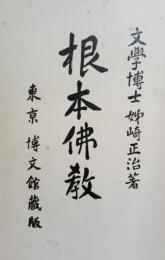 文學博士 姉崎正治著
根本佛教
東京 博文館蔵版